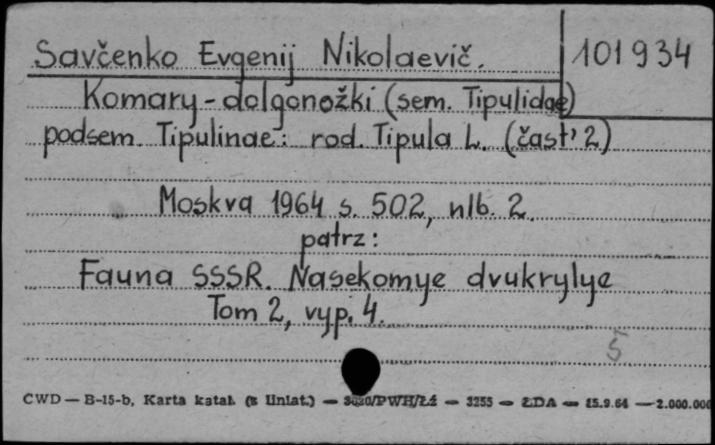 Savčenko Evgenij Nikolaevič. 101934
Komary-dolgonožki (sem. Tipulidae)
podsem. Tipulinae: rod. Tipula L. (čast' 2)
Moskva 1964 s. 502, nlb. 2.
patrz:
Fauna SSSR. Nasekomye dvukrylye
Tom 2, vyp. 4.
5
CWD — B-15-b, Karta katal. (z liniat.) — /PWH/Łź — 3255 — ŁDA — 15.9.64 — 2.000.000